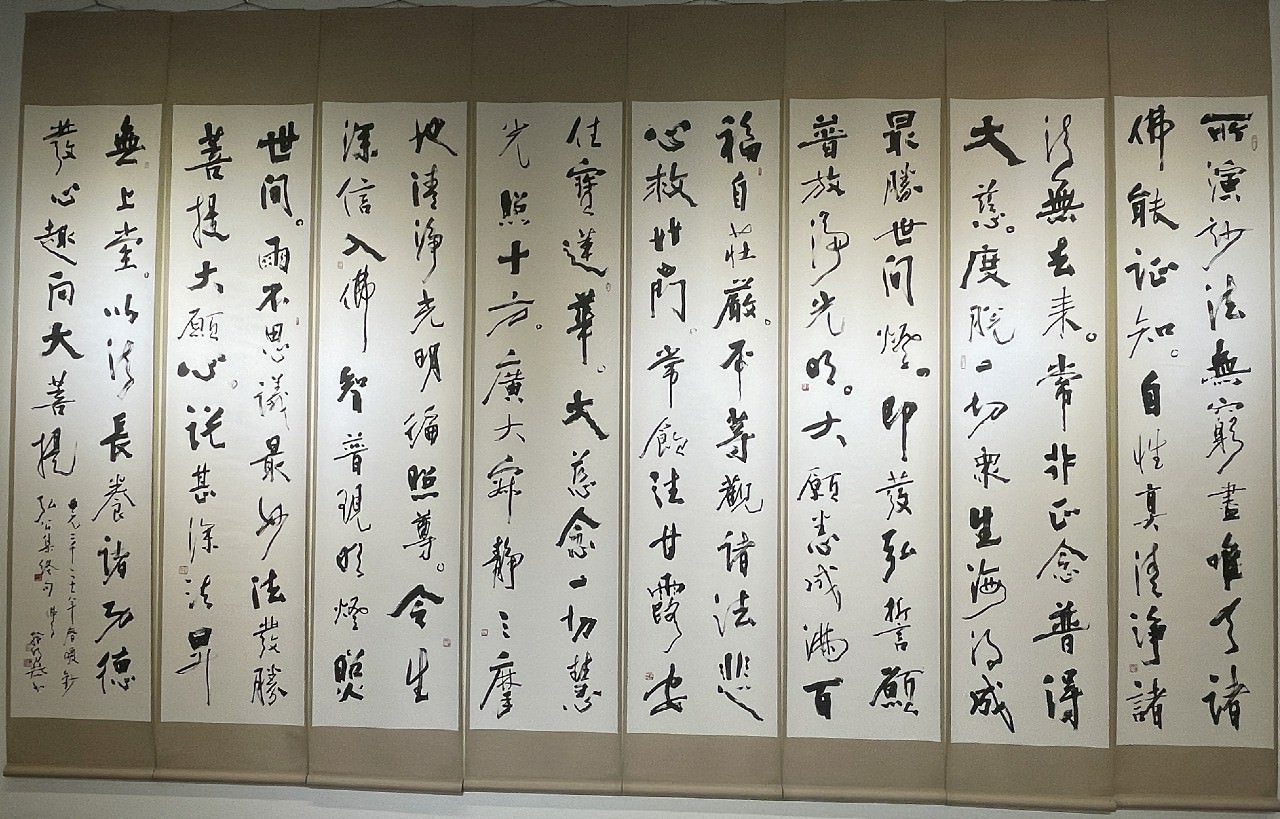 所演妙法無窮盡唯有諸
佛能证知。自性真清淨諸
法無去来。常正念普得
大慈。度脱一切衆生海得成
最勝世间燈。即發弘誓願
普放淨光明。大願悉成滿百
福自莊嚴。平等觀諸法悲
心救世间。常飲法甘露安
住寶蓮華。大慈念一切慧
光照十方。廣大寂靜三摩
地清淨光明徧照尊。令生
深信入佛智普現明燈照
世间。雨不思議最妙法發勝
菩提大願心。説甚深法昇
無上堂。以法長養諸功德
發心趣向大菩提
弘公集